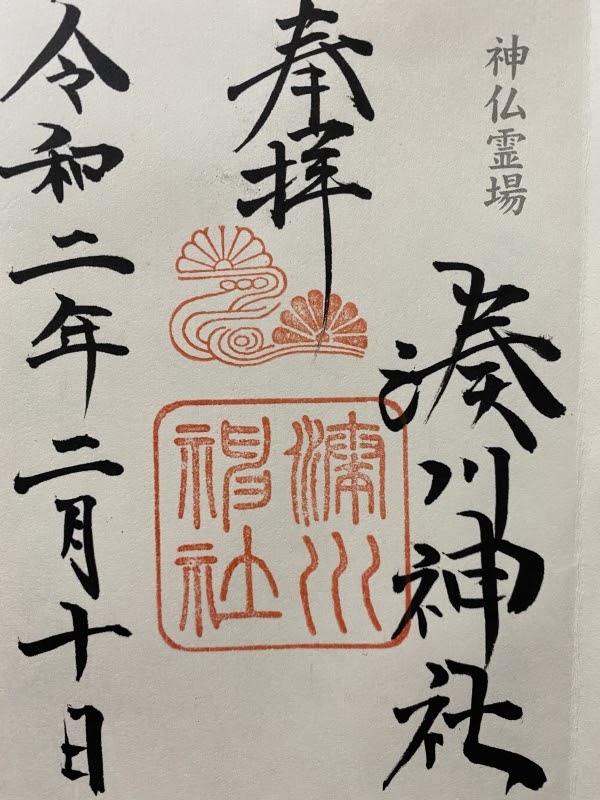 神仏霊場
湊川神社
奉拝
湊川
神社
令和二年二月十日